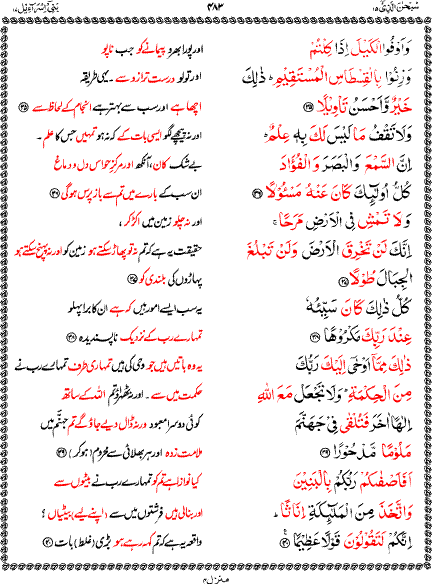 سُبْحٰنَ الَّذِیْ ۱۵
۴۸۳
بَنِیْۤ اِسْرَآءِیْل ۱۷
وَاَوْفُوا الْكَيْلَ اِذَا كِلْتُمْ
وَزِنُوْا بِالْقِسْطَاسِ الْمُسْتَقِيْمِ ؕ ذٰلِكَ
خَيْرٌ وَّاَحْسَنُ تَاْوِيْلًا ﴿۳۵﴾
وَلَا تَقْفُ مَا لَيْسَ لَكَ بِهٖ عِلْمٌ ؕ
اِنَّ السَّمْعَ وَالْبَصَرَ وَالْفُؤَادَ
كُلُّ اُولٰٓئِكَ كَانَ عَنْهُ مَسْئُوْلًا ﴿۳۶﴾
وَلَا تَمْشِ فِي الْاَرْضِ مَرَحًا ۚ
اِنَّكَ لَنْ تَخْرِقَ الْاَرْضَ وَلَنْ تَبْلُغَ
الْجِبَالَ طُوْلًا ﴿۳۷﴾
كُلُّ ذٰلِكَ كَانَ سَيِّئُهٗ
عِنْدَ رَبِّكَ مَكْرُوْهًا ﴿۳۸﴾
ذٰلِكَ مِمَّاۤ اَوْحٰۤى اِلَيْكَ رَبُّكَ
مِنَ الْحِكْمَةِ ؕ وَلَا تَجْعَلْ مَعَ اللّٰهِ
اِلٰهًا اٰخَرَ فَتُلْقٰى فِيْ جَهَنَّمَ
مَلُوْمًا مَّدْحُوْرًا ﴿۳۹﴾
اَفَاَصْفٰىكُمْ رَبُّكُمْ بِالْبَنِيْنَ
وَاتَّخَذَ مِنَ الْمَلٰٓئِكَةِ اِنَاثًا ؕ
اِنَّكُمْ لَتَقُوْلُوْنَ قَوْلًا عَظِيْمًا ﴿۴۰﴾
اور پورا بھرو پیمانے کو جب ناپو
اور تولو درست ترازو سے ۔ یہی طریقہ
اچھا ہے اور سب سے بہتر ہے انجام کے لحاظ سے ﴿۳۵﴾
اور نہ پیچھے لگو ایسی بات کے کہ نہ ہو تمہیں جس کا علم ۔
بے شک کان، آنکھ اور مرکزِ حواس دل و دماغ
ان سب کے بارے میں تم سے باز پرس ہوگی ﴿۳۶﴾
اور نہ چلو زمین میں اکڑ کر ،
حقیقت یہ ہے کہ تم نہ تو پھاڑ سکتے ہو زمین کو اور نہ پہنچ سکتے ہو
پہاڑوں کی بلندی کو ﴿۳۷﴾
یہ سب ایسے امور ہیں کہ ہے ان کا برا پہلو
تمہارے رب کے نزدیک ناپسندیدہ ﴿۳۸﴾
یہ وہ باتیں ہیں جو وحی کی ہیں تمہاری طرف تمہارے رب نے
حکمت میں سے ۔ اور نہ ٹھہراؤ تم اللہ کے ساتھ
کوئی دوسرا معبود ورنہ ڈال دیے جاؤ گے تم جہنّم میں
ملامت زدہ اور ہر بھلائی سے محروم (ہو کر) ﴿۳۹﴾
کیا نوازا ہے تم کو تمہارے رب نے بیٹوں سے
اور بنالی ہیں فرشتوں میں سے (اپنے لیے) بیٹیاں ؟
واقعہ یہ ہے کہ تم کہہ رہے ہو بڑی (غلط) بات ﴿۴۰﴾
منزل ۴